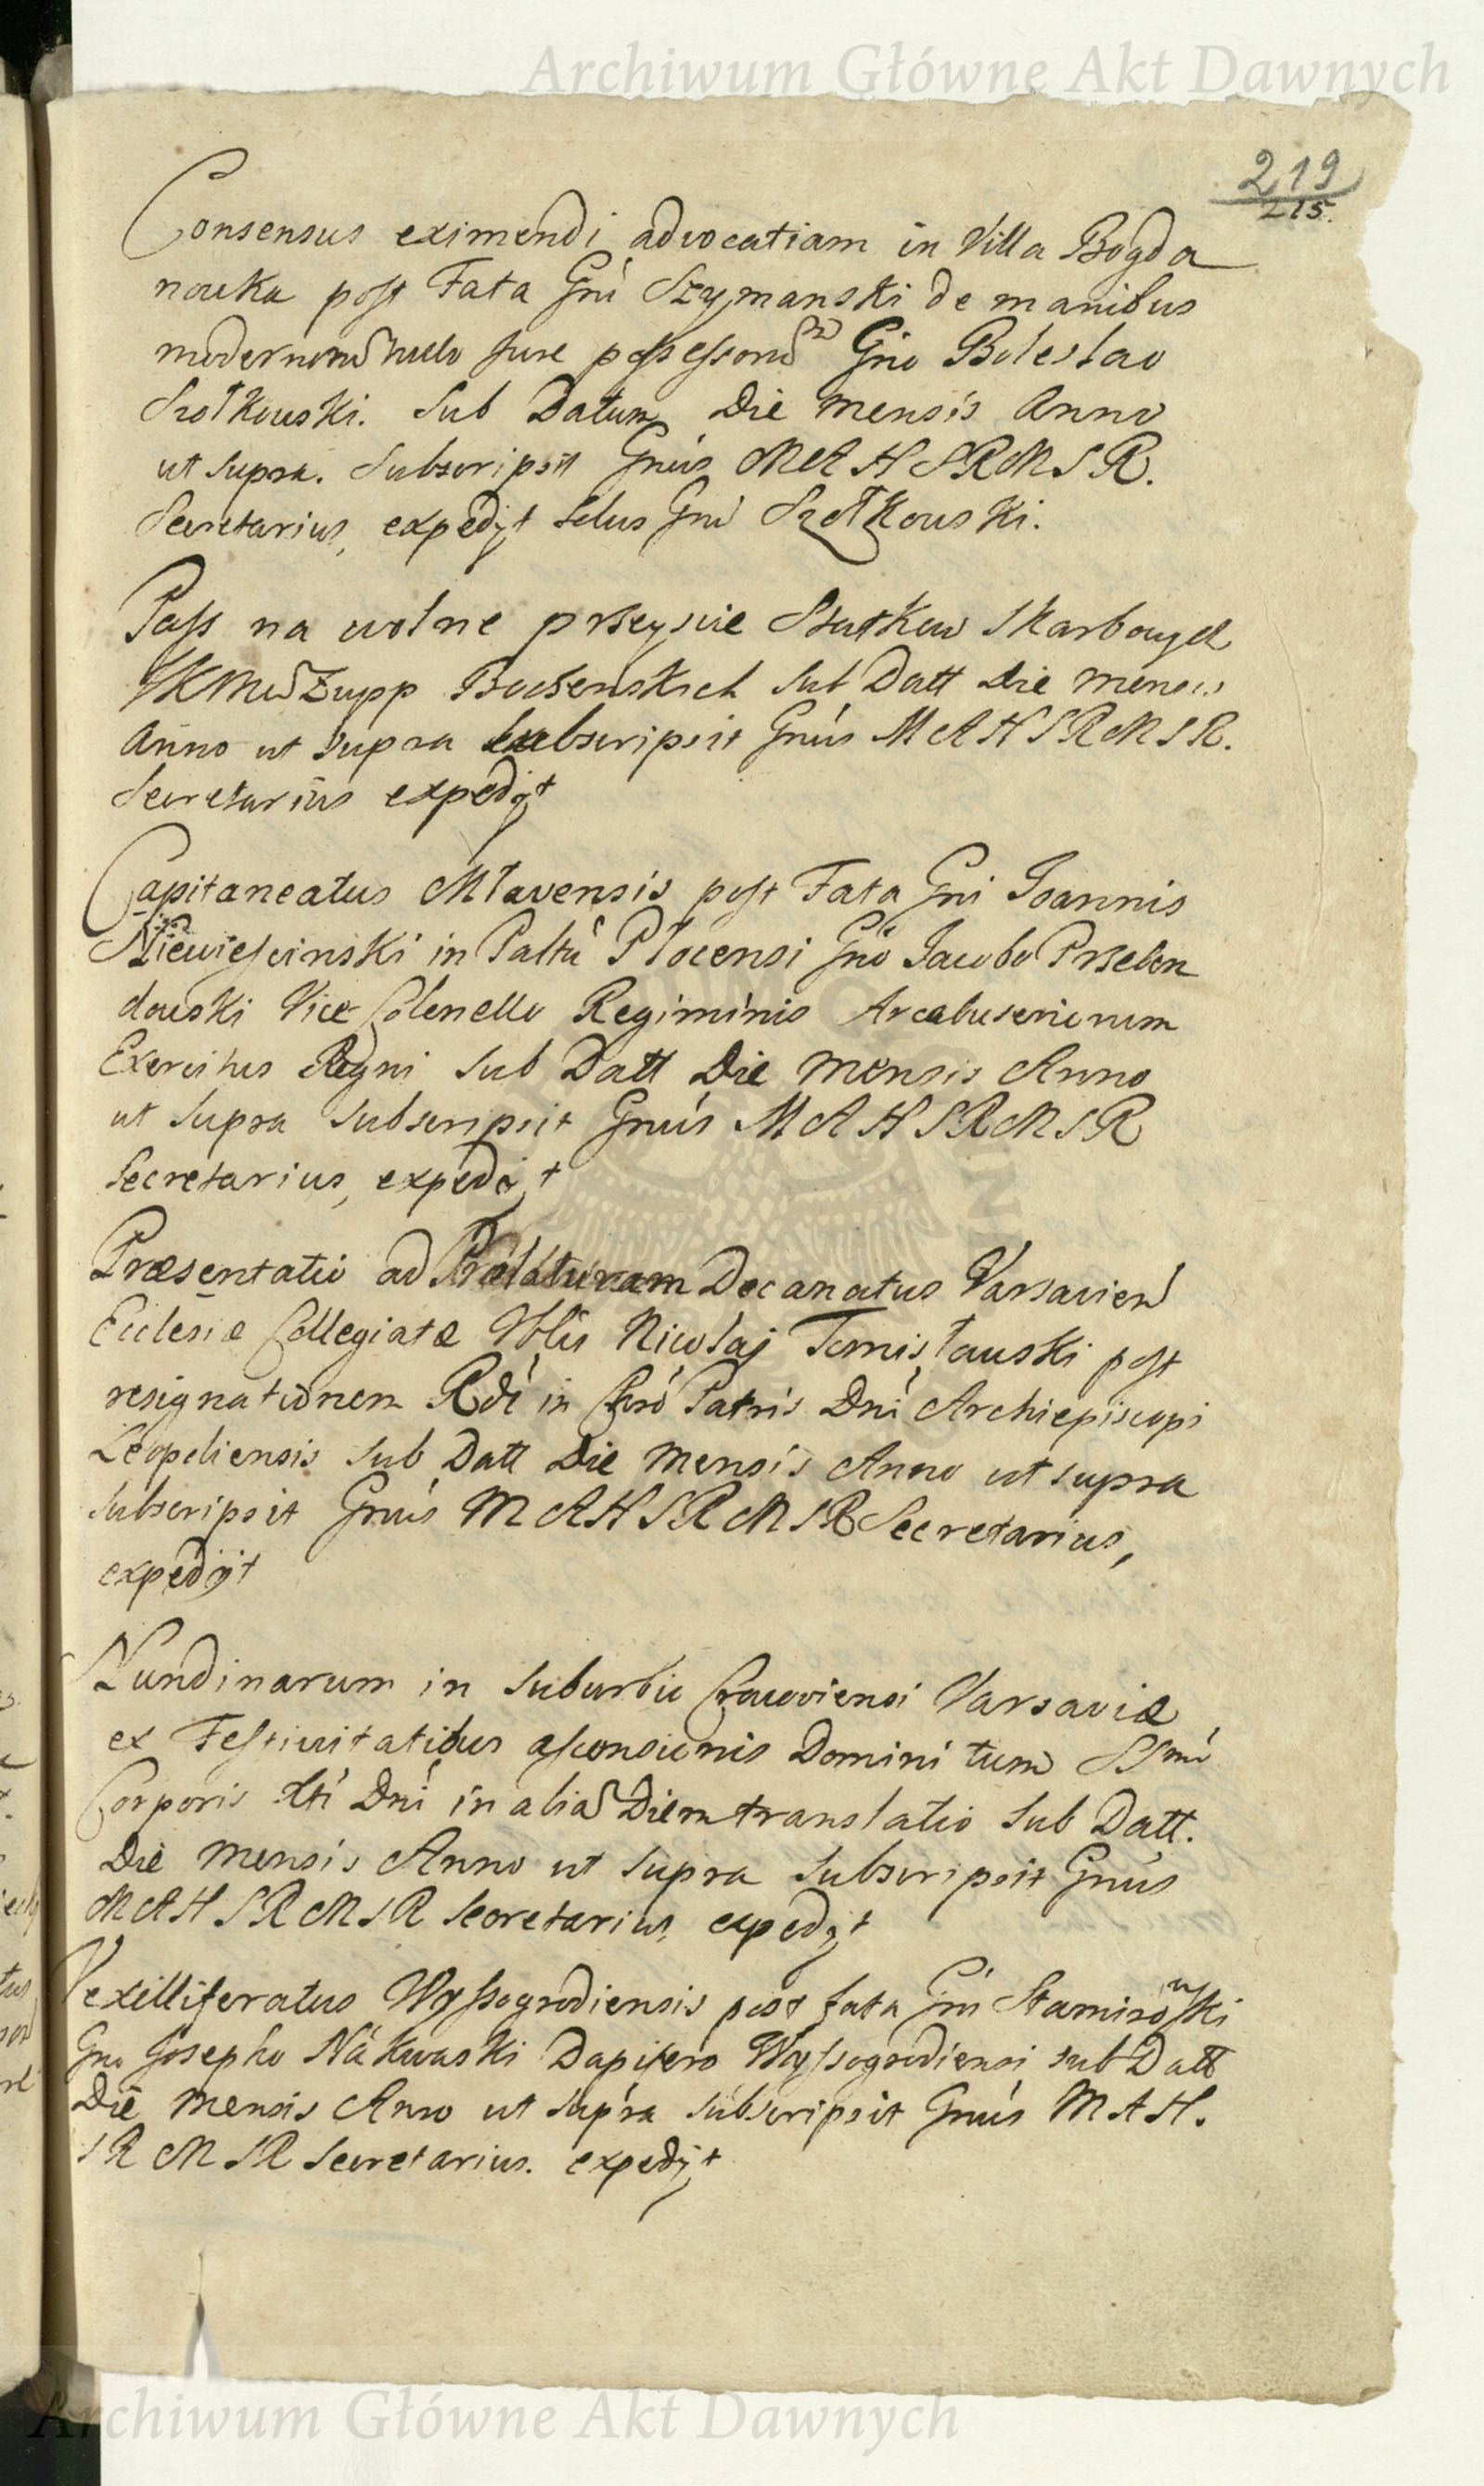 Archiwum Główne Akt Dawnych
219
215.
Consensus eximendi advocatiam in Villa Bogda
nowka post Fata Gni Szymanski de manibus
modernorum nullo Jure possessorum Gno Boleslao
Szołkowski. Sub Datum Die mensis Anno
ut supra. Subscripsit Gnus M A H S R M S R.
Secretarius, expedijt Gni Szołkowski.
Pass na wolne przeyscie Statkow Skarbowych
JKMci Zupp Bochenskich Sub Datt Die mensis
Anno ut supra subscripsit Gnus M A H S R M S R.
Secretarius expedijt
Capitaneatus Mlavensis post Fata Gni Joannis
Niewiescinski in Palttu Płocensi Gno Jacobo Przeben
dowski Vice Colonello Regiminis Arcabuseriorum
Exercitus Regni Sub Datt Die mensis Anno
ut supra subscripsit Gnus M A H S R M S R
Secretarius, expedijt
Præsentatio ad Prælaturam Decanatus Varsavien
Ecclesiæ Collegiatæ Nicolaj Tomisławski post
resignationem Rdi in Patris Dni Archiepiscopi
Leopoliensis Sub Datt Die mensis Anno ut supra
subscripsit Gnus M A H S R M S R Secretarius,
expedijt
Nundinarum in suburbio Cracoviensi Varsaviæ
ex Festivitatibus ascensionis Domini tum SSmi
Corporis Xti Dni in alia Diem translatio Sub Datt.
Die mensis Anno ut supra subscripsit Gnus
M A H S R M S R Secretarius expedijt
Vexilliferatus Wyssogrodiensis post fata Gni Stamirowski
Gno Josepho Nakwaski Dapifero Wyssogrodiensi sub Datt
Die mensis Anno ut supra subscripsit Gnus M A H.
S R M S R Secretarius. expedijt
Archiwum Główne Akt Dawnych